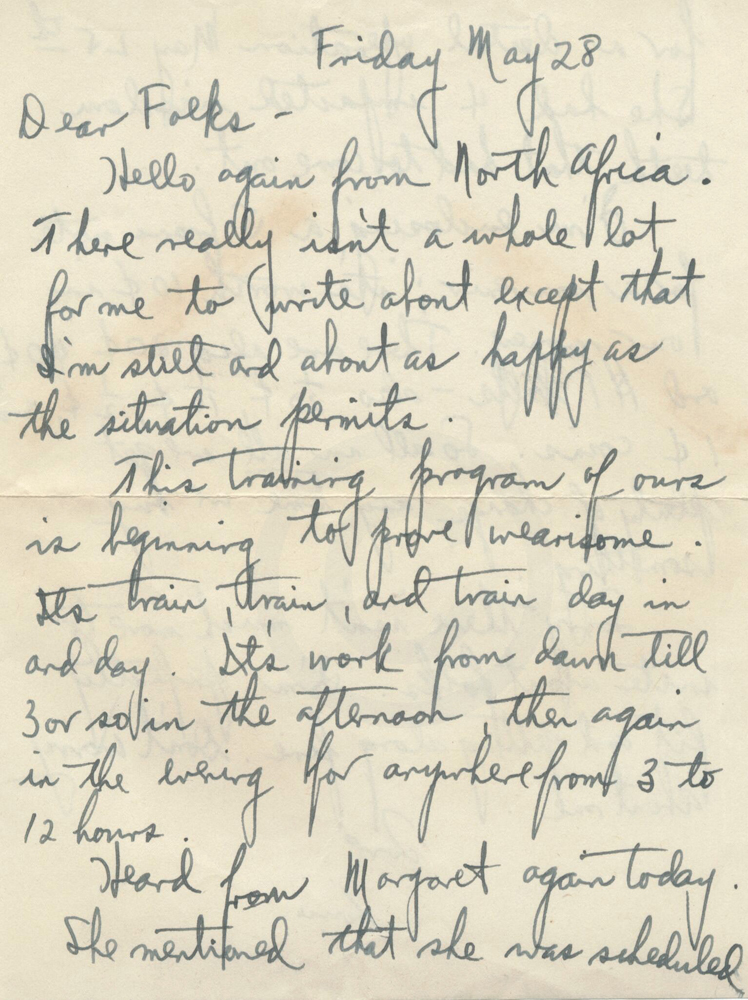 Friday May 28
Dear Folks -
Hello again from North Africa.
There really isn't a whole lot
for me to write about except that
I'm still and about as happy as
the situation permits.
This training program of ours
is beginning to prove wearisome.
Its train, train, and train day in
and day. It's work from dawn till
3 or so in the afternoon, then again
in the evening for anywhere from 3 to
12 hours.
Heard from Margaret again today.
She mentioned that she was scheduled